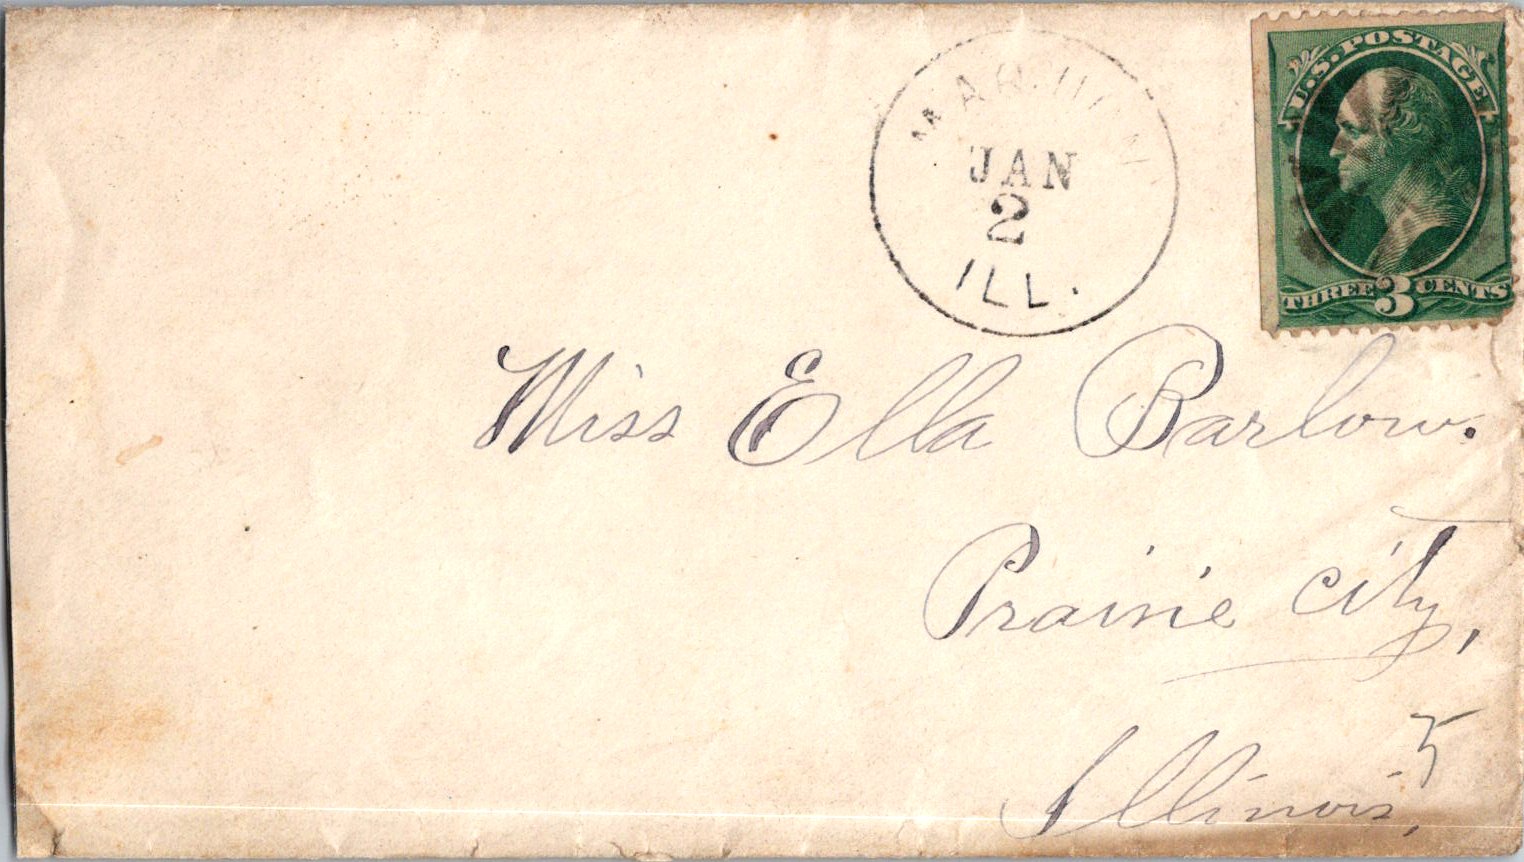 JAN
2
ILL.
U.S. POSTAGE
THREE 3 CENTS
Miss Ella Barlow.
Prairie City,
5
Illinois,